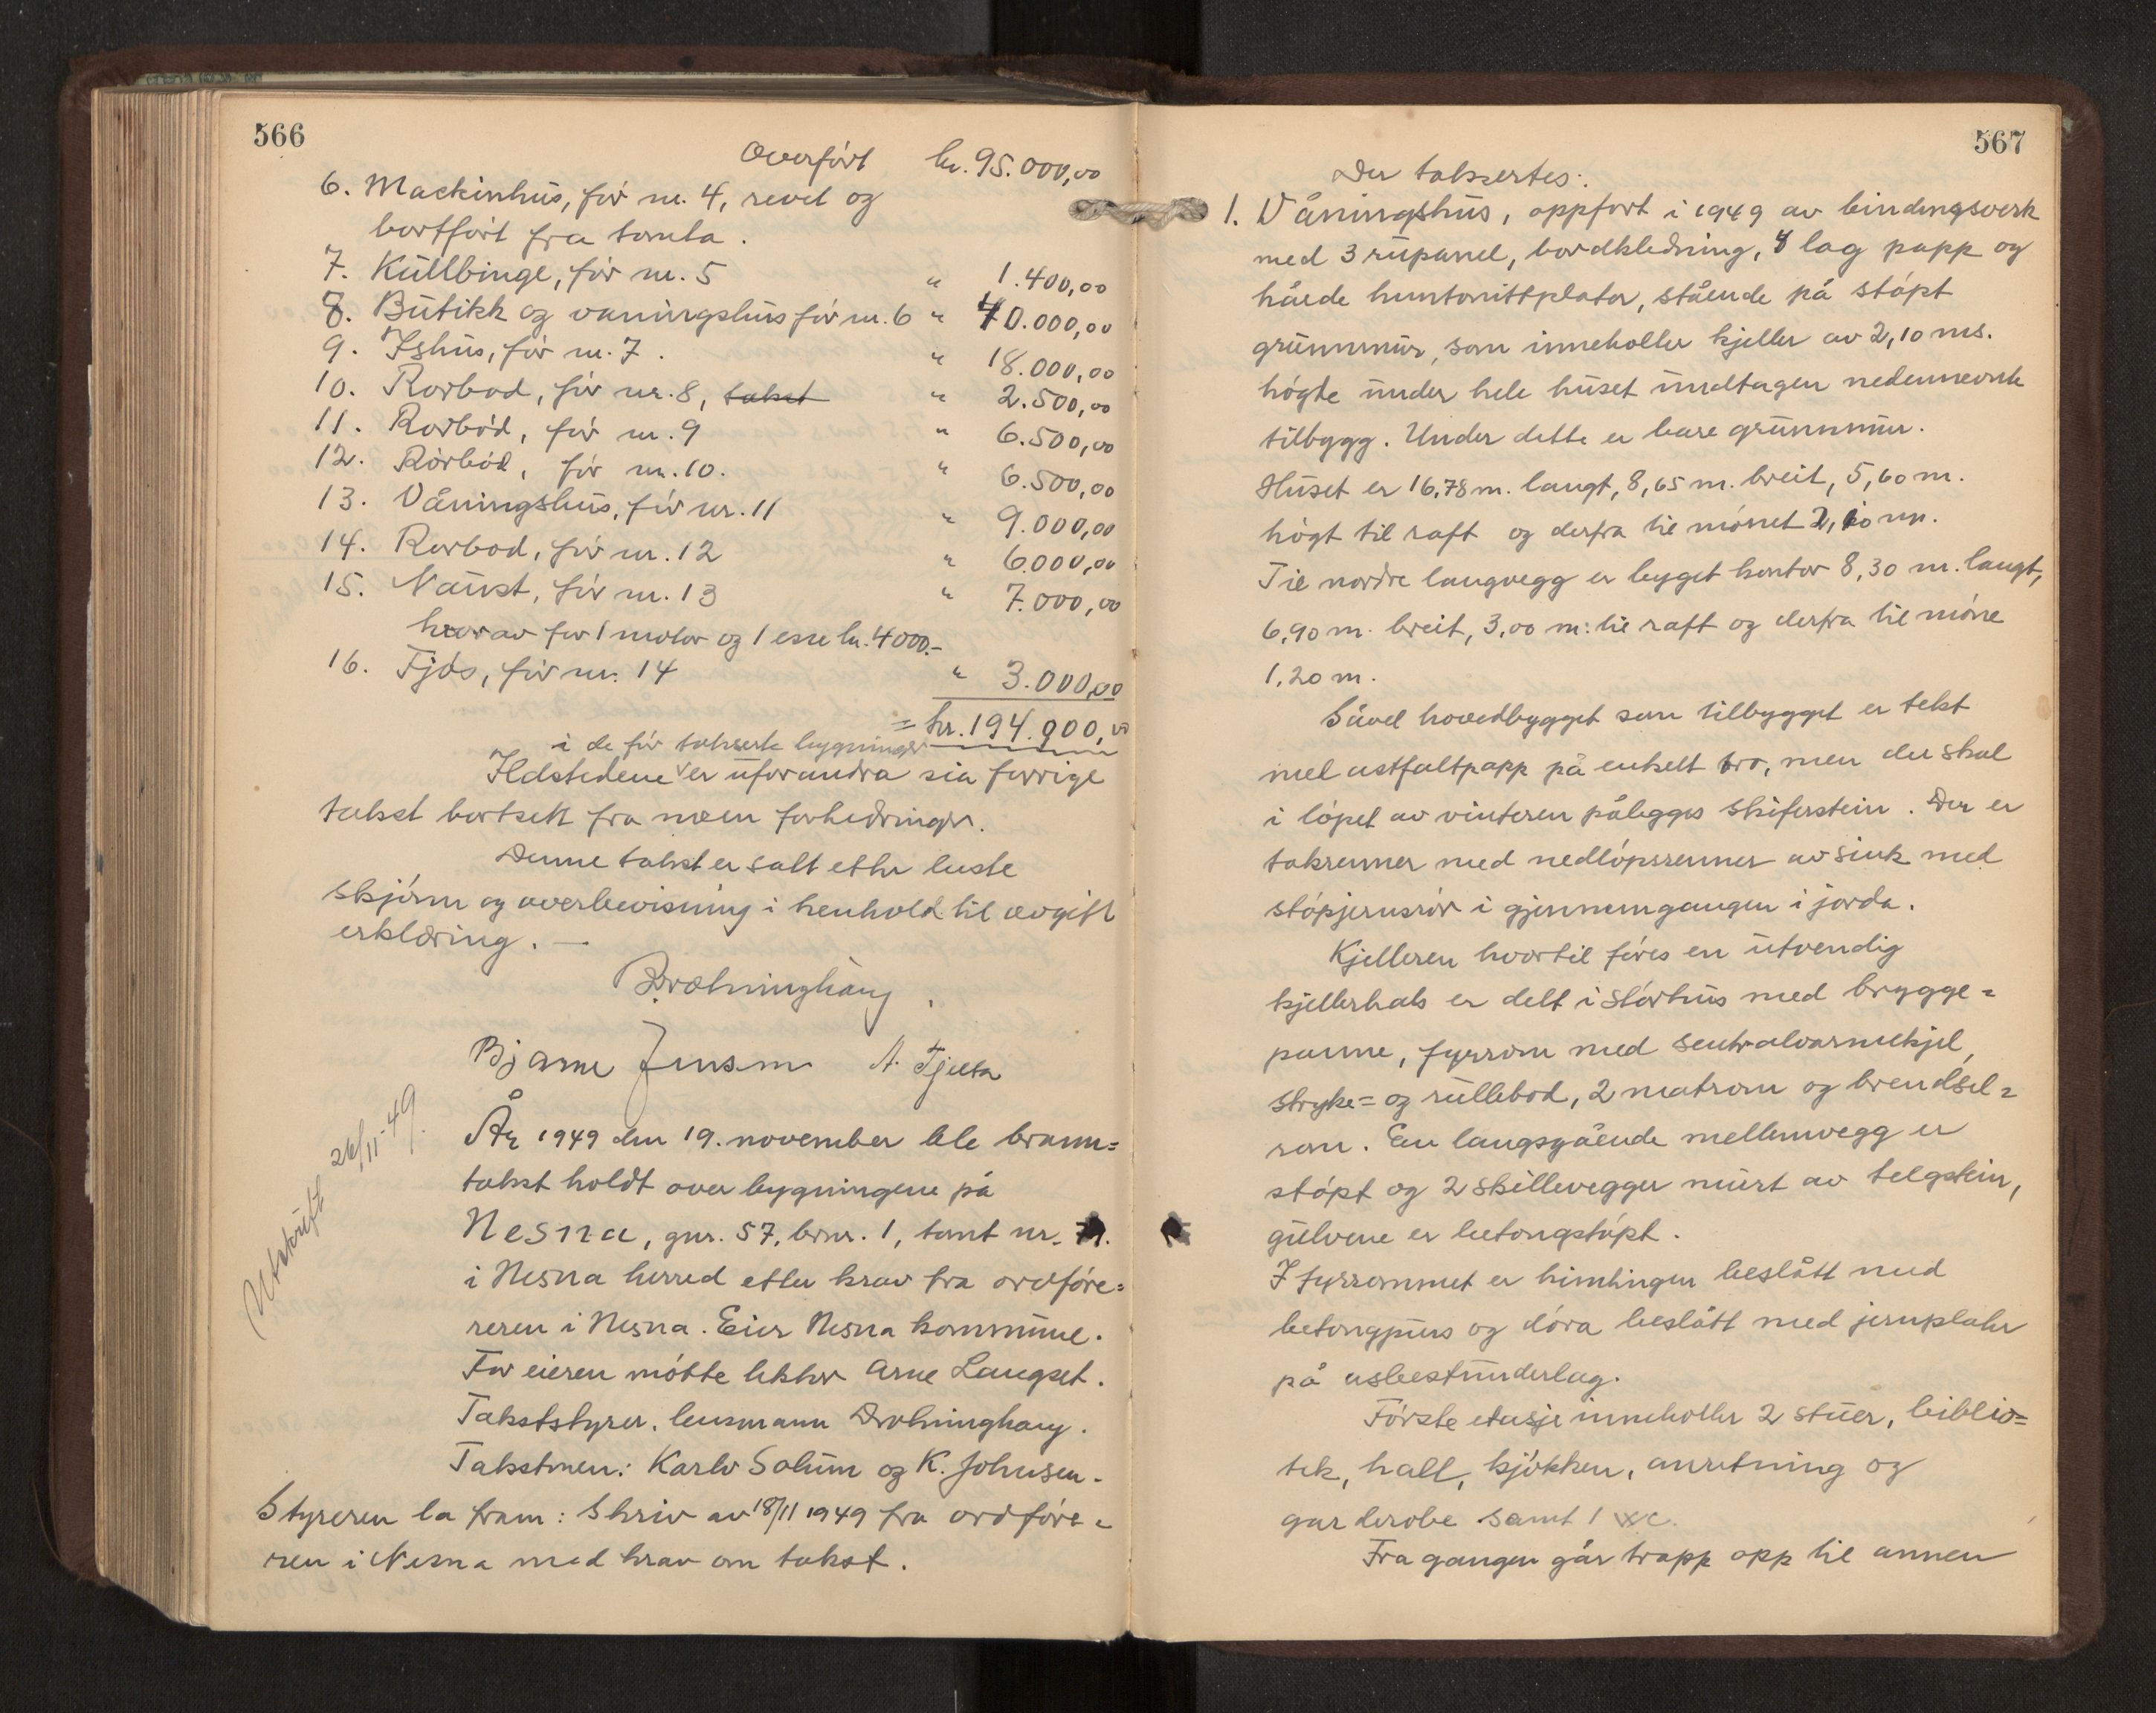 566
Overført kr. 95.000,00
6. Maskinhus, før nr. 4, revet og
bortført fra tomta.
7. Kullbinge, før nr. 5 " 1.400,00
8. Butikk og vaningshus før nr. 6 " 40.000,00
9. Ishus, før nr. 7. " 18.000,00
10. Rorbod, før nr. 8, takst " 2.500,00
11. Rorbod, før nr. 9 " 6.500,00
12. Rorbod, før nr. 10. " 6.500,00
13. Våningshus, før nr. 11 " 9.000,00
14. Rorbod, før nr. 12 " 6.000,00
15. Naust, før nr. 13 " 7.000,00
hvorav for 1 motor og 1 esse kr. 4000.-
16. Fjøs, før nr. 14 " 3.000,00
= kr. 194.900,00
i de før takserte bygninger
Ildstedene er uforandra sia forrige
takst bortsett fra noen forbedringer.
Denne takst er satt etter beste
skjønn og overbevisning i henhold til avgitt
erklæring. —
Drolsninghaug.
Bjarne Jensen A. Fjelta
Utskrift 26/11-49.
År 1949 den 19. november ble brann=
takst holdt over bygningene på
Nesna, gnr. 57, brnr. 1, tomt nr.
i Nesna herred etter krav fra ordføre=
reren i Nesna. Eier Nesna kommune.
For eieren møtte lektor Arne Langset.
Takststyrer, lensmann Drolsninghaug.
Takstmen: Karlo Solum og K. Johnsen.
Styreren la fram: Skriv av 18/11 1949 fra ordføre=
ren i Nesna med krav om takst.
567
Der takseres:
1. Våningshus, oppført i 1949 av bindingsverk
med 3 rupanel, bordkledning, 4 lag papp og
hårde huntonittplater, stående på støpt
grunnmur, som inneholder kjeller av 2,10 ms.
høgte under hele huset undtagen nedennevnte
tilbygg. Under dette er bare grunnmur.
Huset er 16,78 m. langt, 8,65 m. breit, 5,60 m.
høgt til raft og derfra til mønet 2,10 m.
Til nordre langvegg er bygget kontor 8,30 m. langt,
6,90 m. breit, 3,00 m. til raft og derfra til møne
1,20 m.
Såvel hovedbygget som tilbygget er tekt
mel astfaltpapp på enkelt bro, men der skal
i løpet av vinteren pålegges skiferstein. Der er
takrenner med nedløpsrenner av sink med
støpjernsrør i gjennemgangen i jorda.
Kjelleren hvortil føres en utvendig
kjellerhals er delt i størhus med brygge=
panne, fyrrom med sentralvarmekjel,
stryke= og rullebod, 2 matrom og brendsel=
rom. En langsgående mellemvegg er
støpt og 2 skillevegger murt av telgstein,
gulvene er betongstøpt.
I fyrrommet er himlingen beslått med
betongpuss og døra beslått med jernplater
på asbestunderlag.
Første etasje inneholder 2 stuer, biblio=
tek, hall, kjøkken, anretning og
garderobe samt 1 wc.
Fra gangen går trapp opp til annen